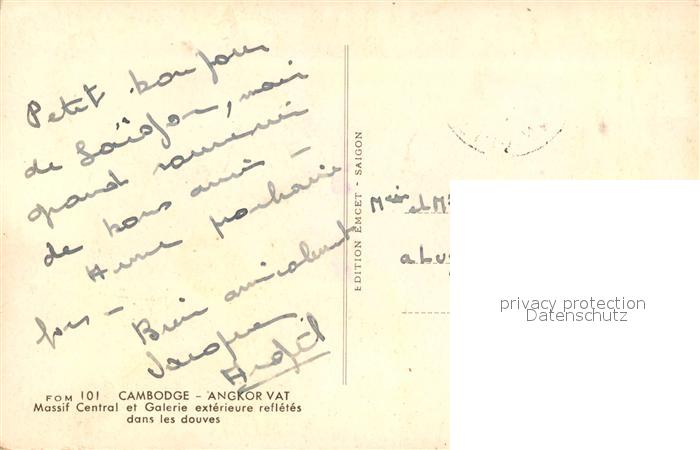 Petit bonjour
de Saïgon, mais
grand souvenir
de bons amis -
A une prochaine
fois -
Bien amicalement
Jacques
EDITION EMCET - SAIGON
et M
a Lu
privacy protection
Datenschutz
FOM 101 CAMBODGE - ANGKOR VAT
Massif Central et Galerie extérieure reflétés
dans les douves